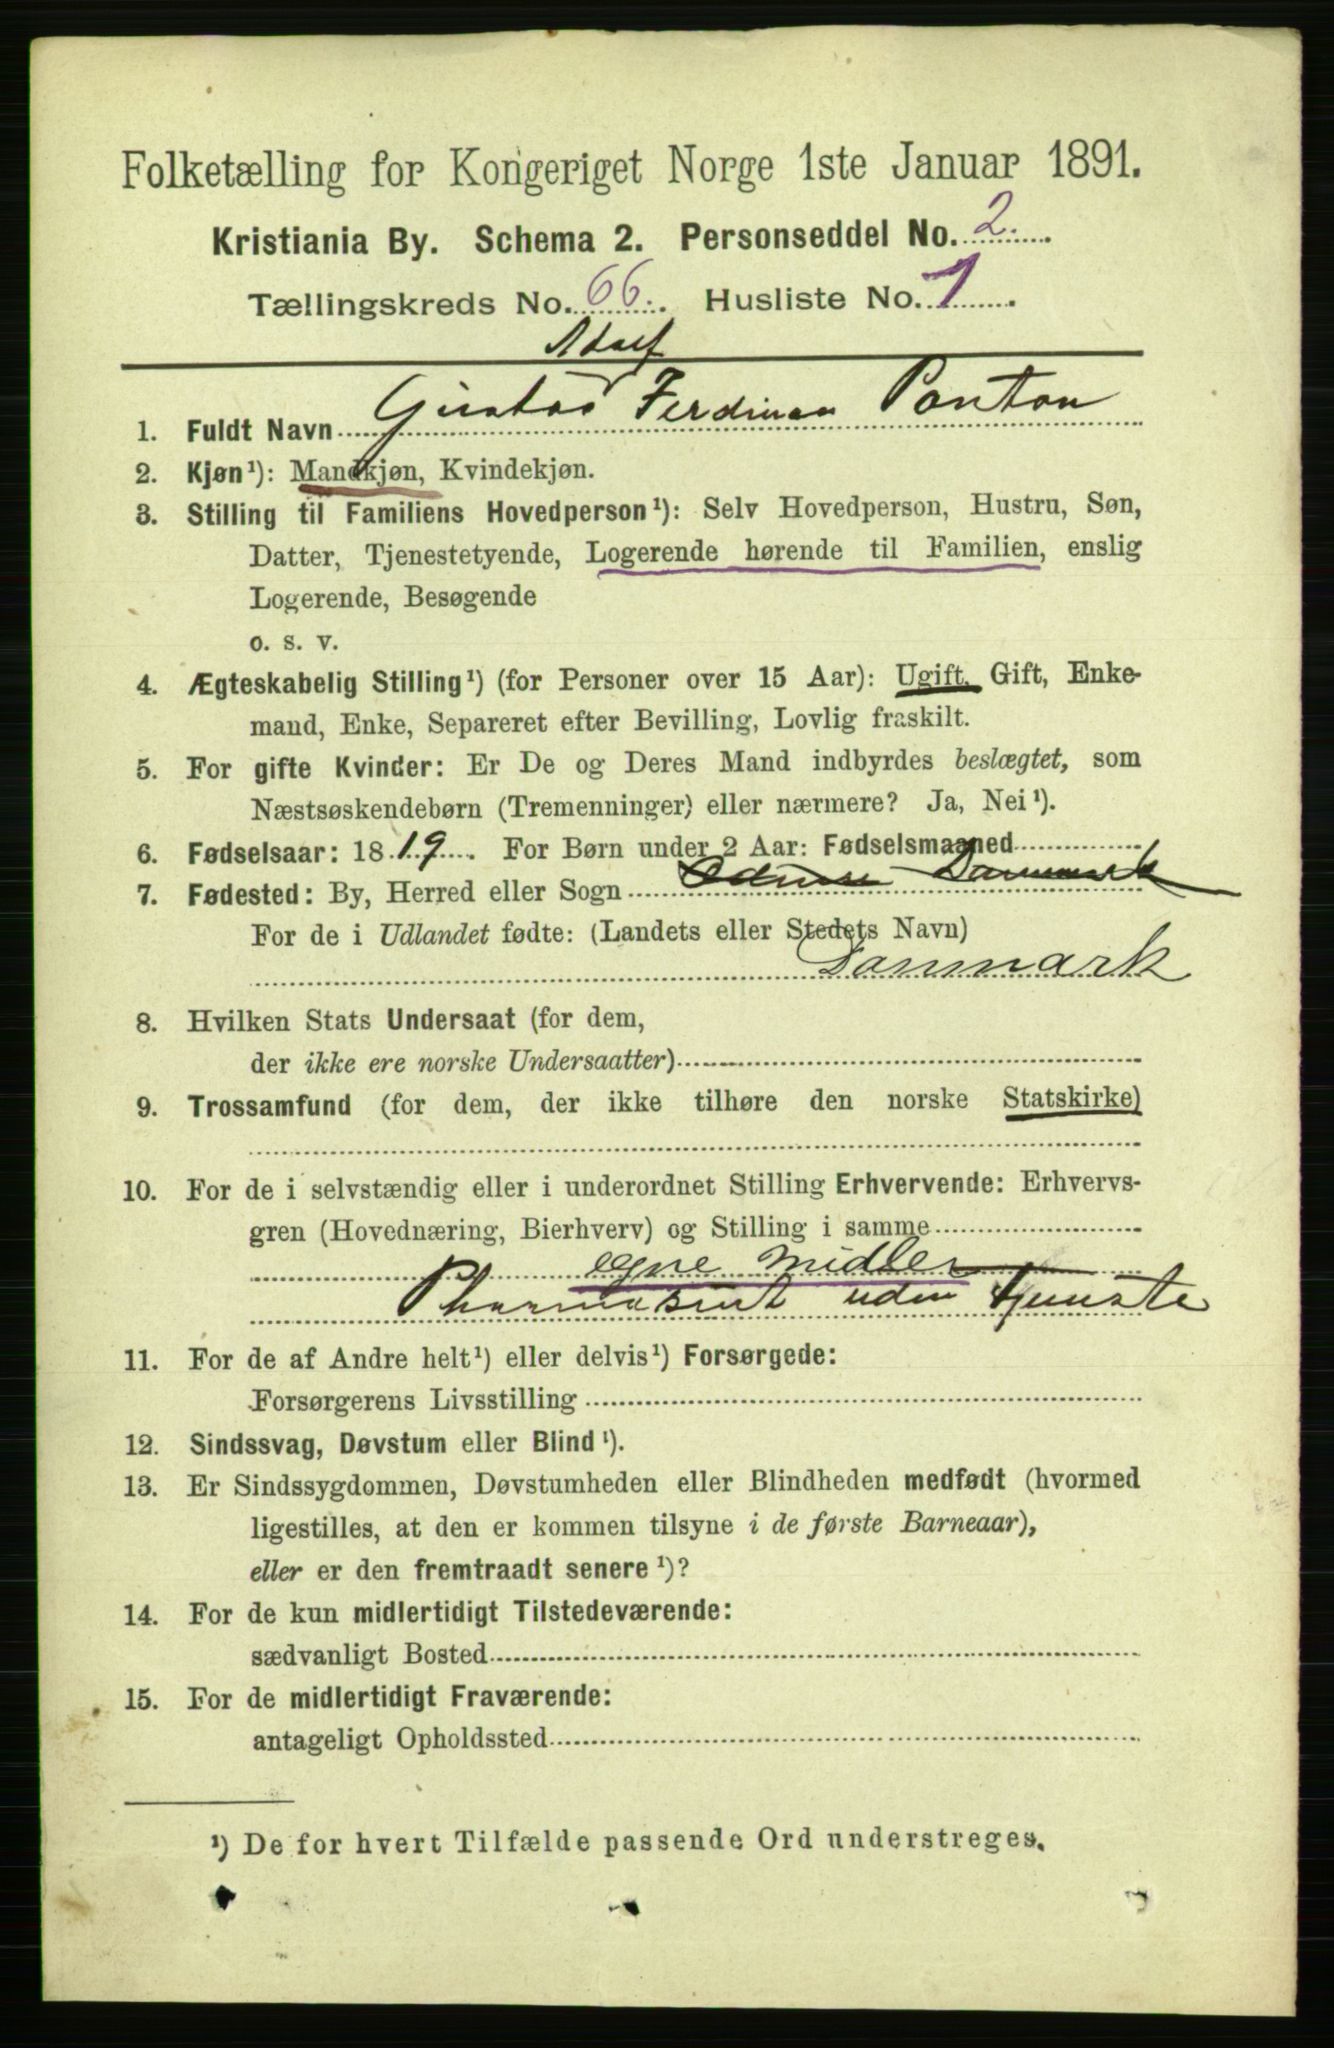 Folketælling for Kongeriget Norge 1ste Januar 1891.
Kristiania By. Schema 2. Personseddel No. 2.
Tællingskreds No. 66. Husliste No. 1.
Adolf
1. Fuldt Navn Gustav Ferdinan Pontou
2. Kjøn¹): Mandkjøn, Kvindekjøn.
3. Stilling til Familiens Hovedperson¹): Selv Hovedperson, Hustru, Søn,
Datter, Tjenestetyende, Logerende hørende til Familien, enslig
Logerende, Besøgende
o. s. v.
4. Ægteskabelig Stilling¹) (for Personer over 15 Aar): Ugift, Gift, Enke-
mand, Enke, Separeret efter Bevilling, Lovlig fraskilt.
5. For gifte Kvinder: Er De og Deres Mand indbyrdes beslægtet, som
Næstsøskendebørn (Tremenninger) eller nærmere? Ja, Nei¹).
6. Fødselsaar: 1819. For Børn under 2 Aar: Fødselsmaaned
7. Fødested: By, Herred eller Sogn Odense Danmark
For de i Udlandet fødte: (Landets eller Stedets Navn)
Danmark
8. Hvilken Stats Undersaat (for dem,
der ikke ere norske Undersaatter)
9. Trossamfund (for dem, der ikke tilhøre den norske Statskirke)
10. For de i selvstændig eller i underordnet Stilling Erhvervende: Erhvervs-
gren (Hovednæring, Bierhverv) og Stilling i samme
egne midler
Pharmaseut uden tjeneste
11. For de af Andre helt¹) eller delvis¹) Forsørgede:
Forsørgerens Livsstilling
12. Sindssvag, Døvstum eller Blind¹).
13. Er Sindssygdommen, Døvstumheden eller Blindheden medfødt (hvormed
ligestilles, at den er kommen tilsyne i de første Barneaar),
eller er den fremtraadt senere¹)?
14. For de kun midlertidigt Tilstedeværende:
sædvanligt Bosted
15. For de midlertidigt Fraværende:
antageligt Opholdssted
¹) De for hvert Tilfælde passende Ord understreges.